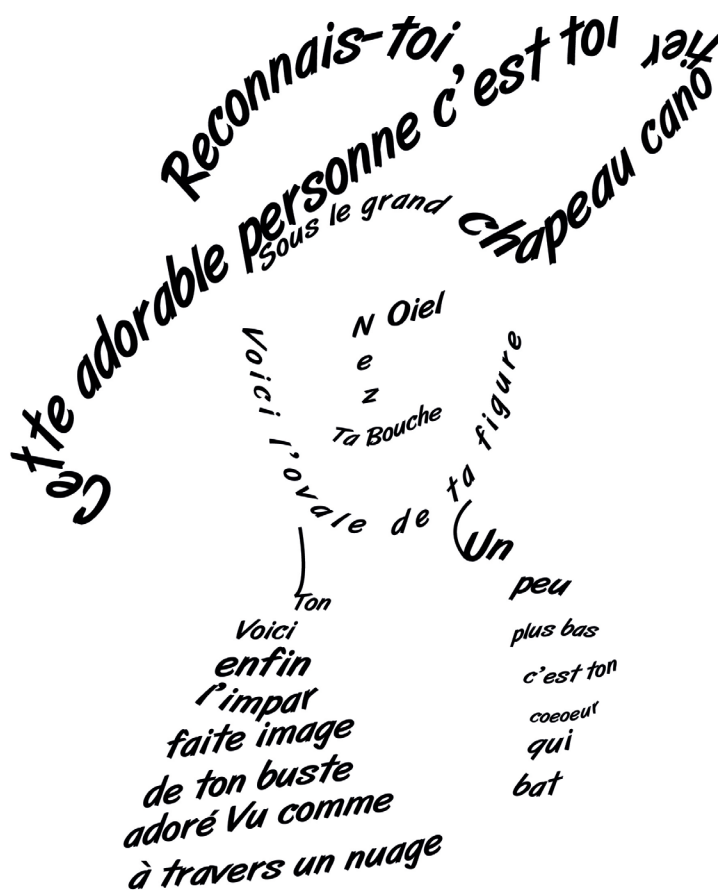 Reconnais-toi
Cette adorable personne c'est toi
Sous le grand chapeau canotier
Oiel
Nez
Ta Bouche
Voici l'ovale de ta figure
Ton
Voici
enfin
l'impar
faite image
de ton buste
adoré Vu comme
à travers un nuage
Un
peu
plus bas
c'est ton
coeoeur
qui
bat